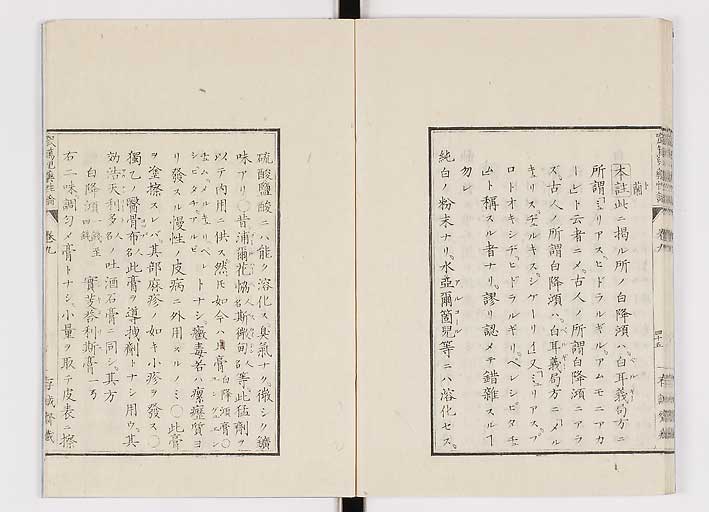 本註此ニ掲ル所ノ白降澒ハ白耳義局方ニ
所謂ミリアスヒドラルギルアムモニアカ
ービト云者ニメ古人ノ所謂白降澒ニアラ
ズ古人ノ所謂白降澒ハ白耳義局方ニメル
キリスヂュルキスジケーリイ又ミリアスプ
ロトオキシヂヒドラルギリペレシピタチュ
ムト稱スル者ナリ謬リ認メテ錯雜スルー
勿レ
純白ノ粉末ナリ水亞爾箇兒等ニハ溶化セス
硫酸鹽酸ニハ能ク溶化ス臭氣ナク微シク鑛
味アリ〇昔浦爾花 斯微甸 等此猛劑ヲ
以テ內用ニ供ス然モ如今ハ 膏 白降澒膏〇
トナシ黴毒者ハ瘰癧質ヨ
リ發スル慢性ノ皮病ニ外用スルノミ〇此膏
ヲ塗擦スレバ其部麻疹ノ如キ小疹ヲ發ス〇
獨乙ノ醫骨布 此膏ヲ導拽劑トナシ用ウ其
効浩天利多 ノ吐酒石膏ニ同シ其方
白降澒 錢至 錢 實芰荅利斯膏一
右二味調勻メ膏トナシ小量ヲ取テ皮表ニ擦
卷九
四十五